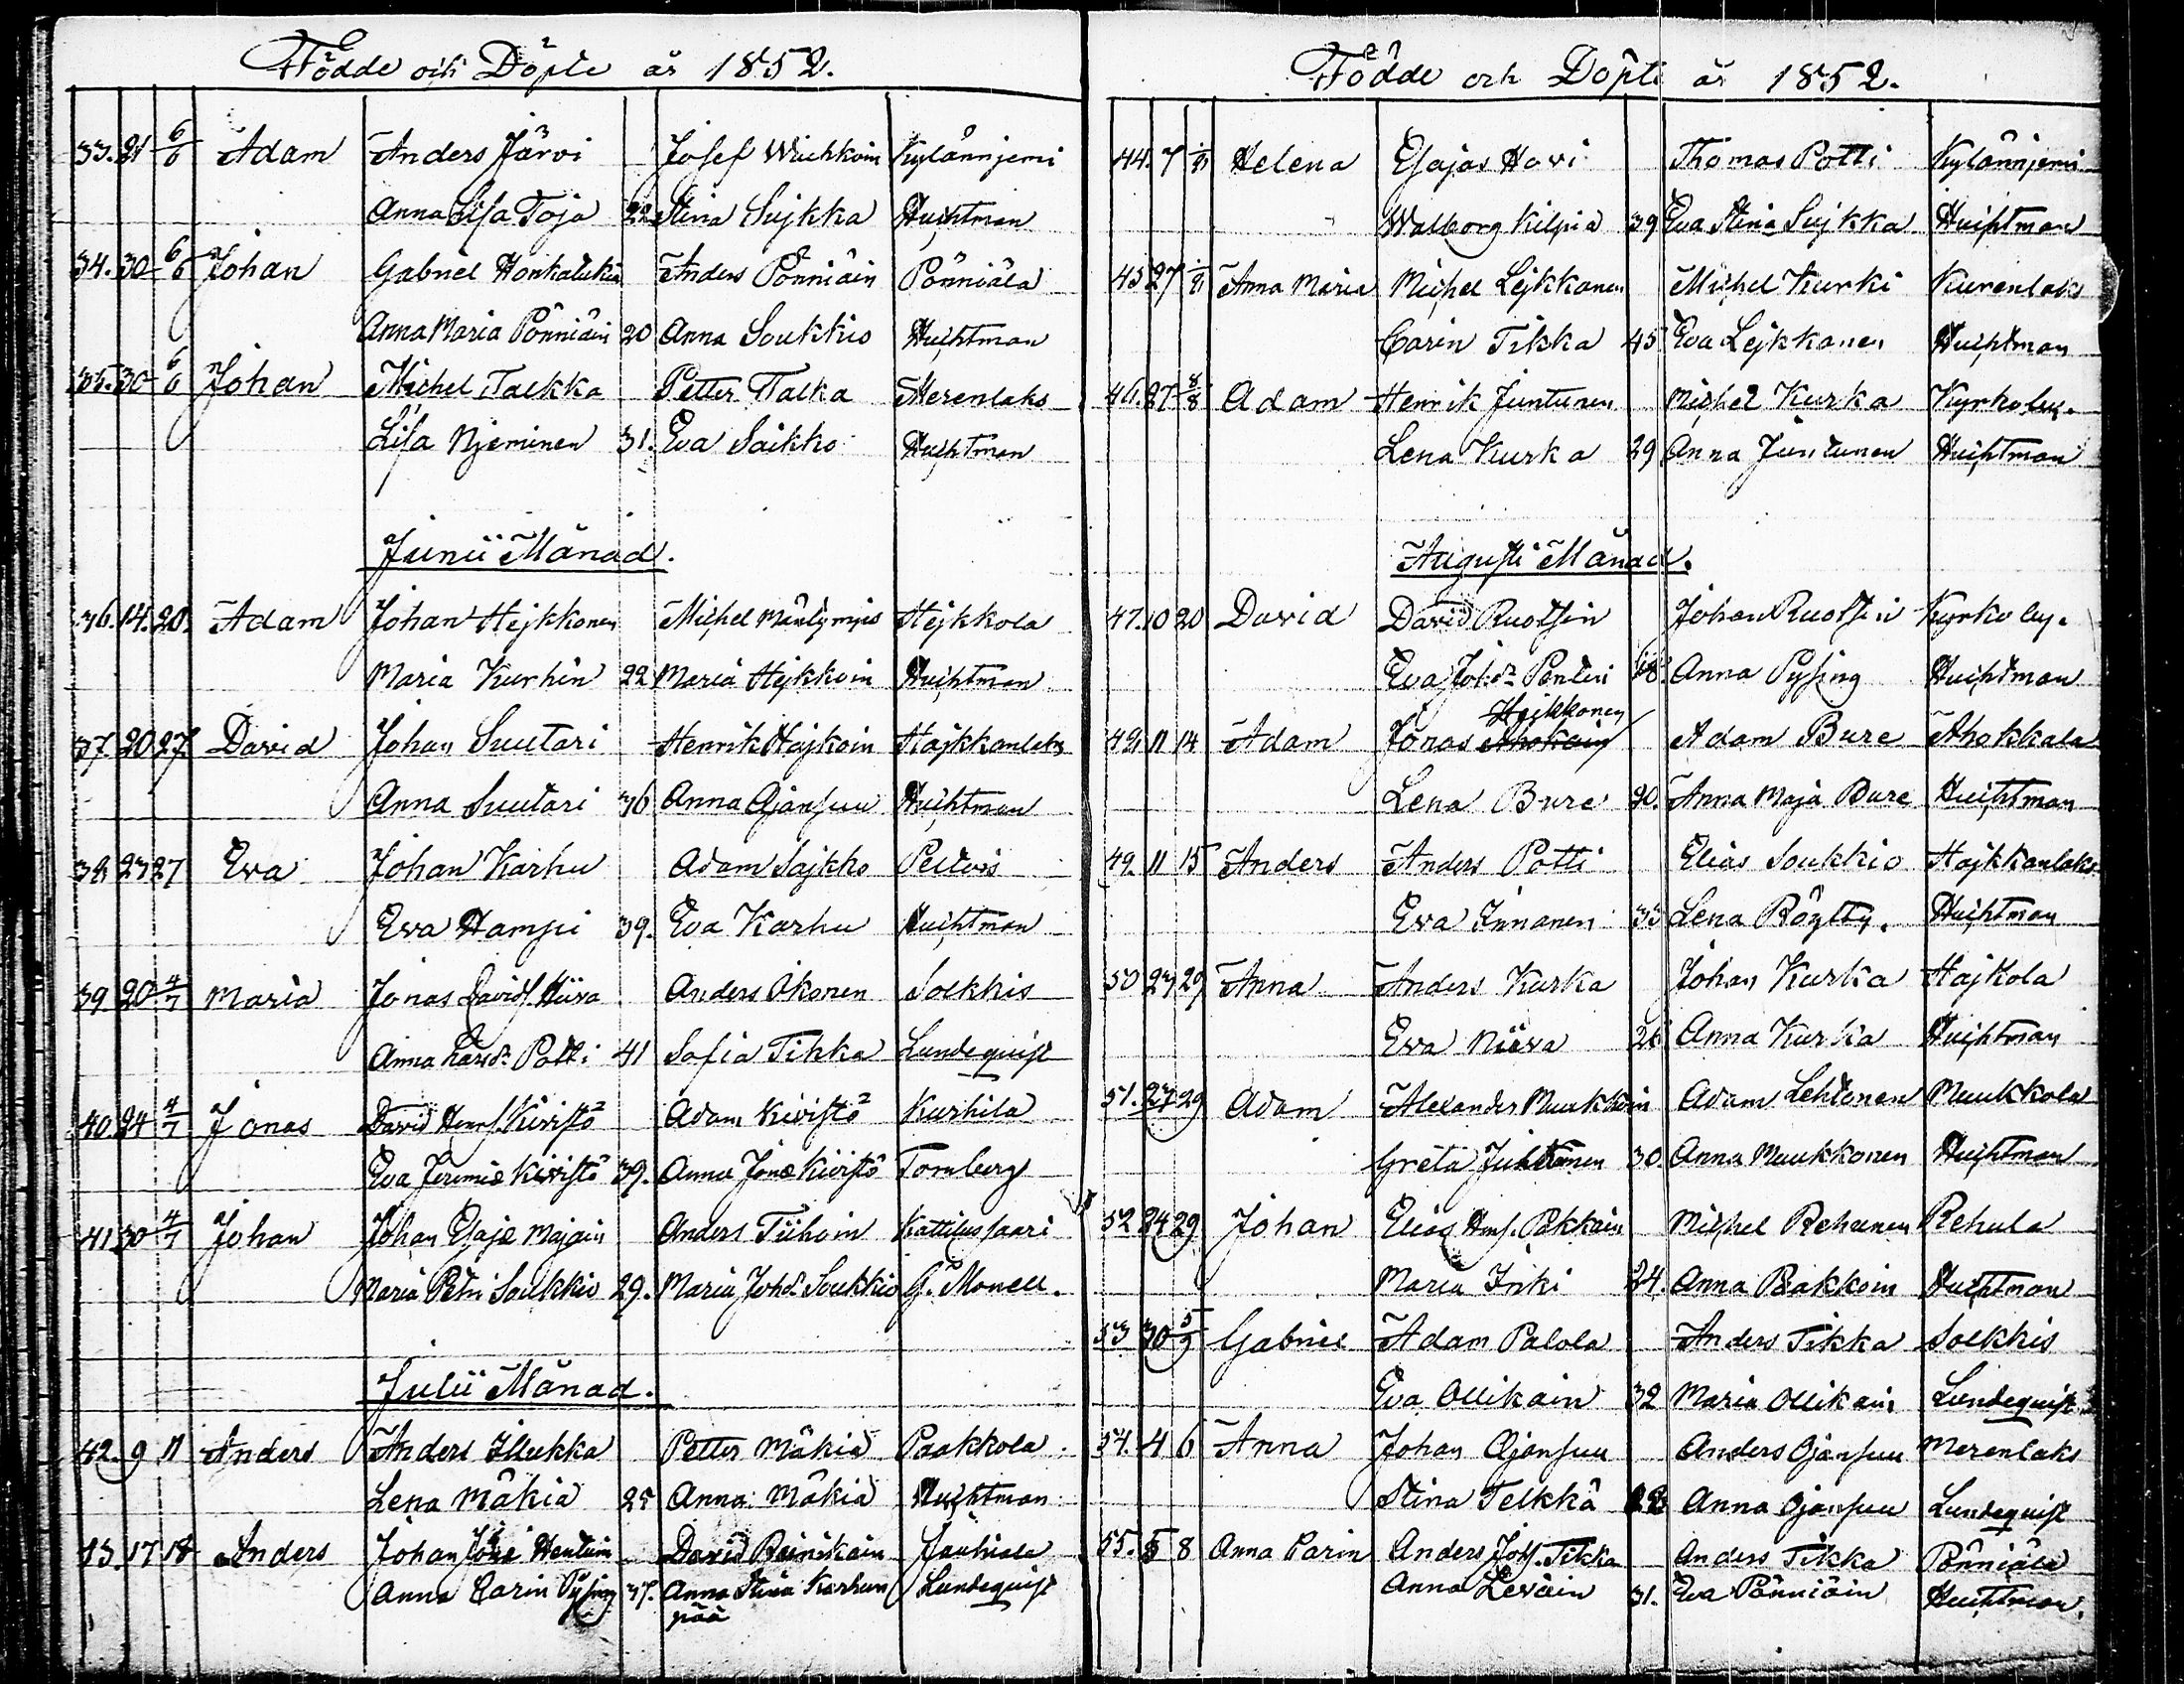 Födde och Döpte år 1852.
33. 21 6/6 Adam Anders Järvi Josef Wiehkoin Kylänniemi
Anna Lisa Toja 22 Stina Sujkka Huihtman
34. 30 6/6 Johan Gabriel Honkalukia Anders Pönniäin Pönniälä
Anna Maria Pönniäin 20 Anna Soukkio Huihtman
35. 30 6/6 Johan Michel Talkka Petter Talka Merenlaks
Lisa Njeminen 31. Eva Saikko Huihtman
Junii Månad.
36. 14. 20. Adam Johan Hejkkonen Michel Mäntymies Hejkkola
Maria Kurhin 22 Maria Hejkkoin Huihtman
37. 20 27. David Johan Suutari Henrik Hajkoin Hajkkanlaks
Anna Suutari 36 Anna Ojansuu Huihtman
38 23 27 Eva Johan Karhu Adam Sajkko Peltois
Eva Hampi 39. Eva Karhu Huihtman
39. 20 4/7 Maria Jonas Davids. Niiva Anders Ikonen Solkkis
Anna Larsdr Potti 41 Sofia Tikka Lundequist
40. 24 4/7 Jonas David Henrs. Kivistö Adam Kivistö Kurhila
Eva Jeremiæ Kivistö 39. Anna Jonæ Kivistö Tornberg
41 30 4/7 Johan Johan Esajæ Majain Anders Tiihoin Kattilussaari
Maria Petri Soukkio 29. Maria Johdr Soukkio G. Monell.
Julii Månad.
42. 9 11 Anders Anders Ilukka Petter Mäkiä Paakkola
Lena Mäkiä 25 Anna Mäkiä Huihtman
43. 17 18 Anders Johan Hentuin David Reinikain Jauhiala
Anna Carin Pysing 37. Anna Stina Karhun Lundequist
pää
Födde och Döpte år 1852.
44. 7 Helena Esajas Hovi Thomas Potti Kylänniemi
Walborg Kilpiä 39 Eva Stina Sujkka Huihtman
45 27 Anna Maria Michel Lejkkonen Michel Kurki Kurenlaks
Carin Tikka 45 Eva Lejkkonen Huihtman
46. 27 8/8 Adam Henrik Juntunen Michel Kurka Kyrkoby.
Lena Kurka 29 Anna Juntunen Huihtman
Augusti Månad.
47. 10 20 David David Ruotsin Johan Ruotsin Kyrkoby.
Eva Johdr Penteri Anna Pysing Huihtman
Hejkkonen
48 11 14 Adam Jonas Ahokain Adam Bure Ahokkala
Lena Bure 30. Anna Maja Bure Huihtman
49. 11 15 Anders Anders Potti Elias Soukkio Hajkkanlaks
Eva Innanen 33 Lena Röytty. Huihtman
50 23 29 Anna Anders Kurka Johan Kurka Hajkola
Eva Niiva 26 Anna Kurka Huihtman
51. 27 29 Adam Alexander Muukkoin Adam Lehtonen Muukkola
Greta Juhtonen 30. Anna Muukkonen Huihtman
52 24 29 Johan Elias Henrs. Pakkain Michel Rehunen Rehula
Maria Inki 24. Anna Pakkoin Huihtman
53 30 5/9 Gabriel Adam Palola Anders Tikka Solkkis
Eva Ollikain 32 Maria Ollikain Lundequist
54. 4 6 Anna Johan Ojansuu Anders Ojansuu Merenlaks
Stina Telkkä 22 Anna Ojansuu Lundequist
55. 5 8 Anna Carin Anders Jos. Tikka Anders Tikka Pönniälä
Anna Leväin 31. Eva Pönniäin Huihtman.